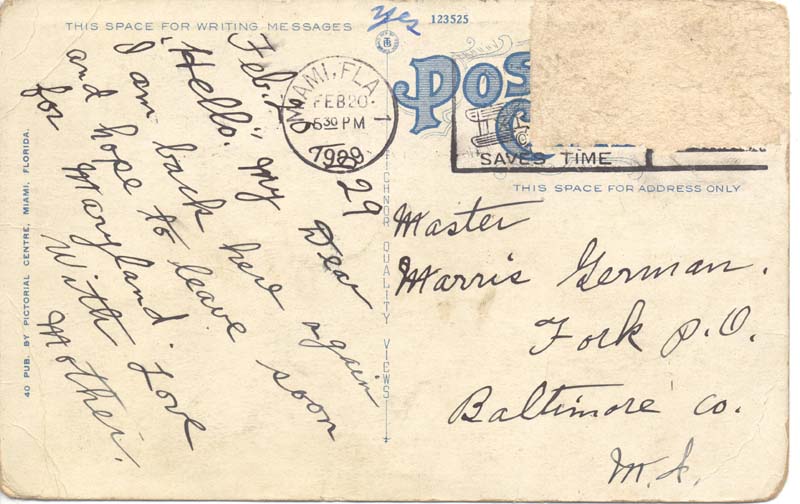 THIS SPACE FOR WRITING MESSAGES
yes
123525
Feb. 20, 29
"Hello" My Dear
I am back here again
and hope to leave soon
for Maryland. Love
With
Mother.
MIAMI, FLA.
1
FEB 20
5 30 PM
1929
SAVES TIME
THIS SPACE FOR ADDRESS ONLY
Master
Marris German.
Fork P.O.
Baltimore Co.
Md.
40 PUB. BY PICTORIAL CENTRE, MIAMI, FLORIDA.
TICHNOR QUALITY VIEWS